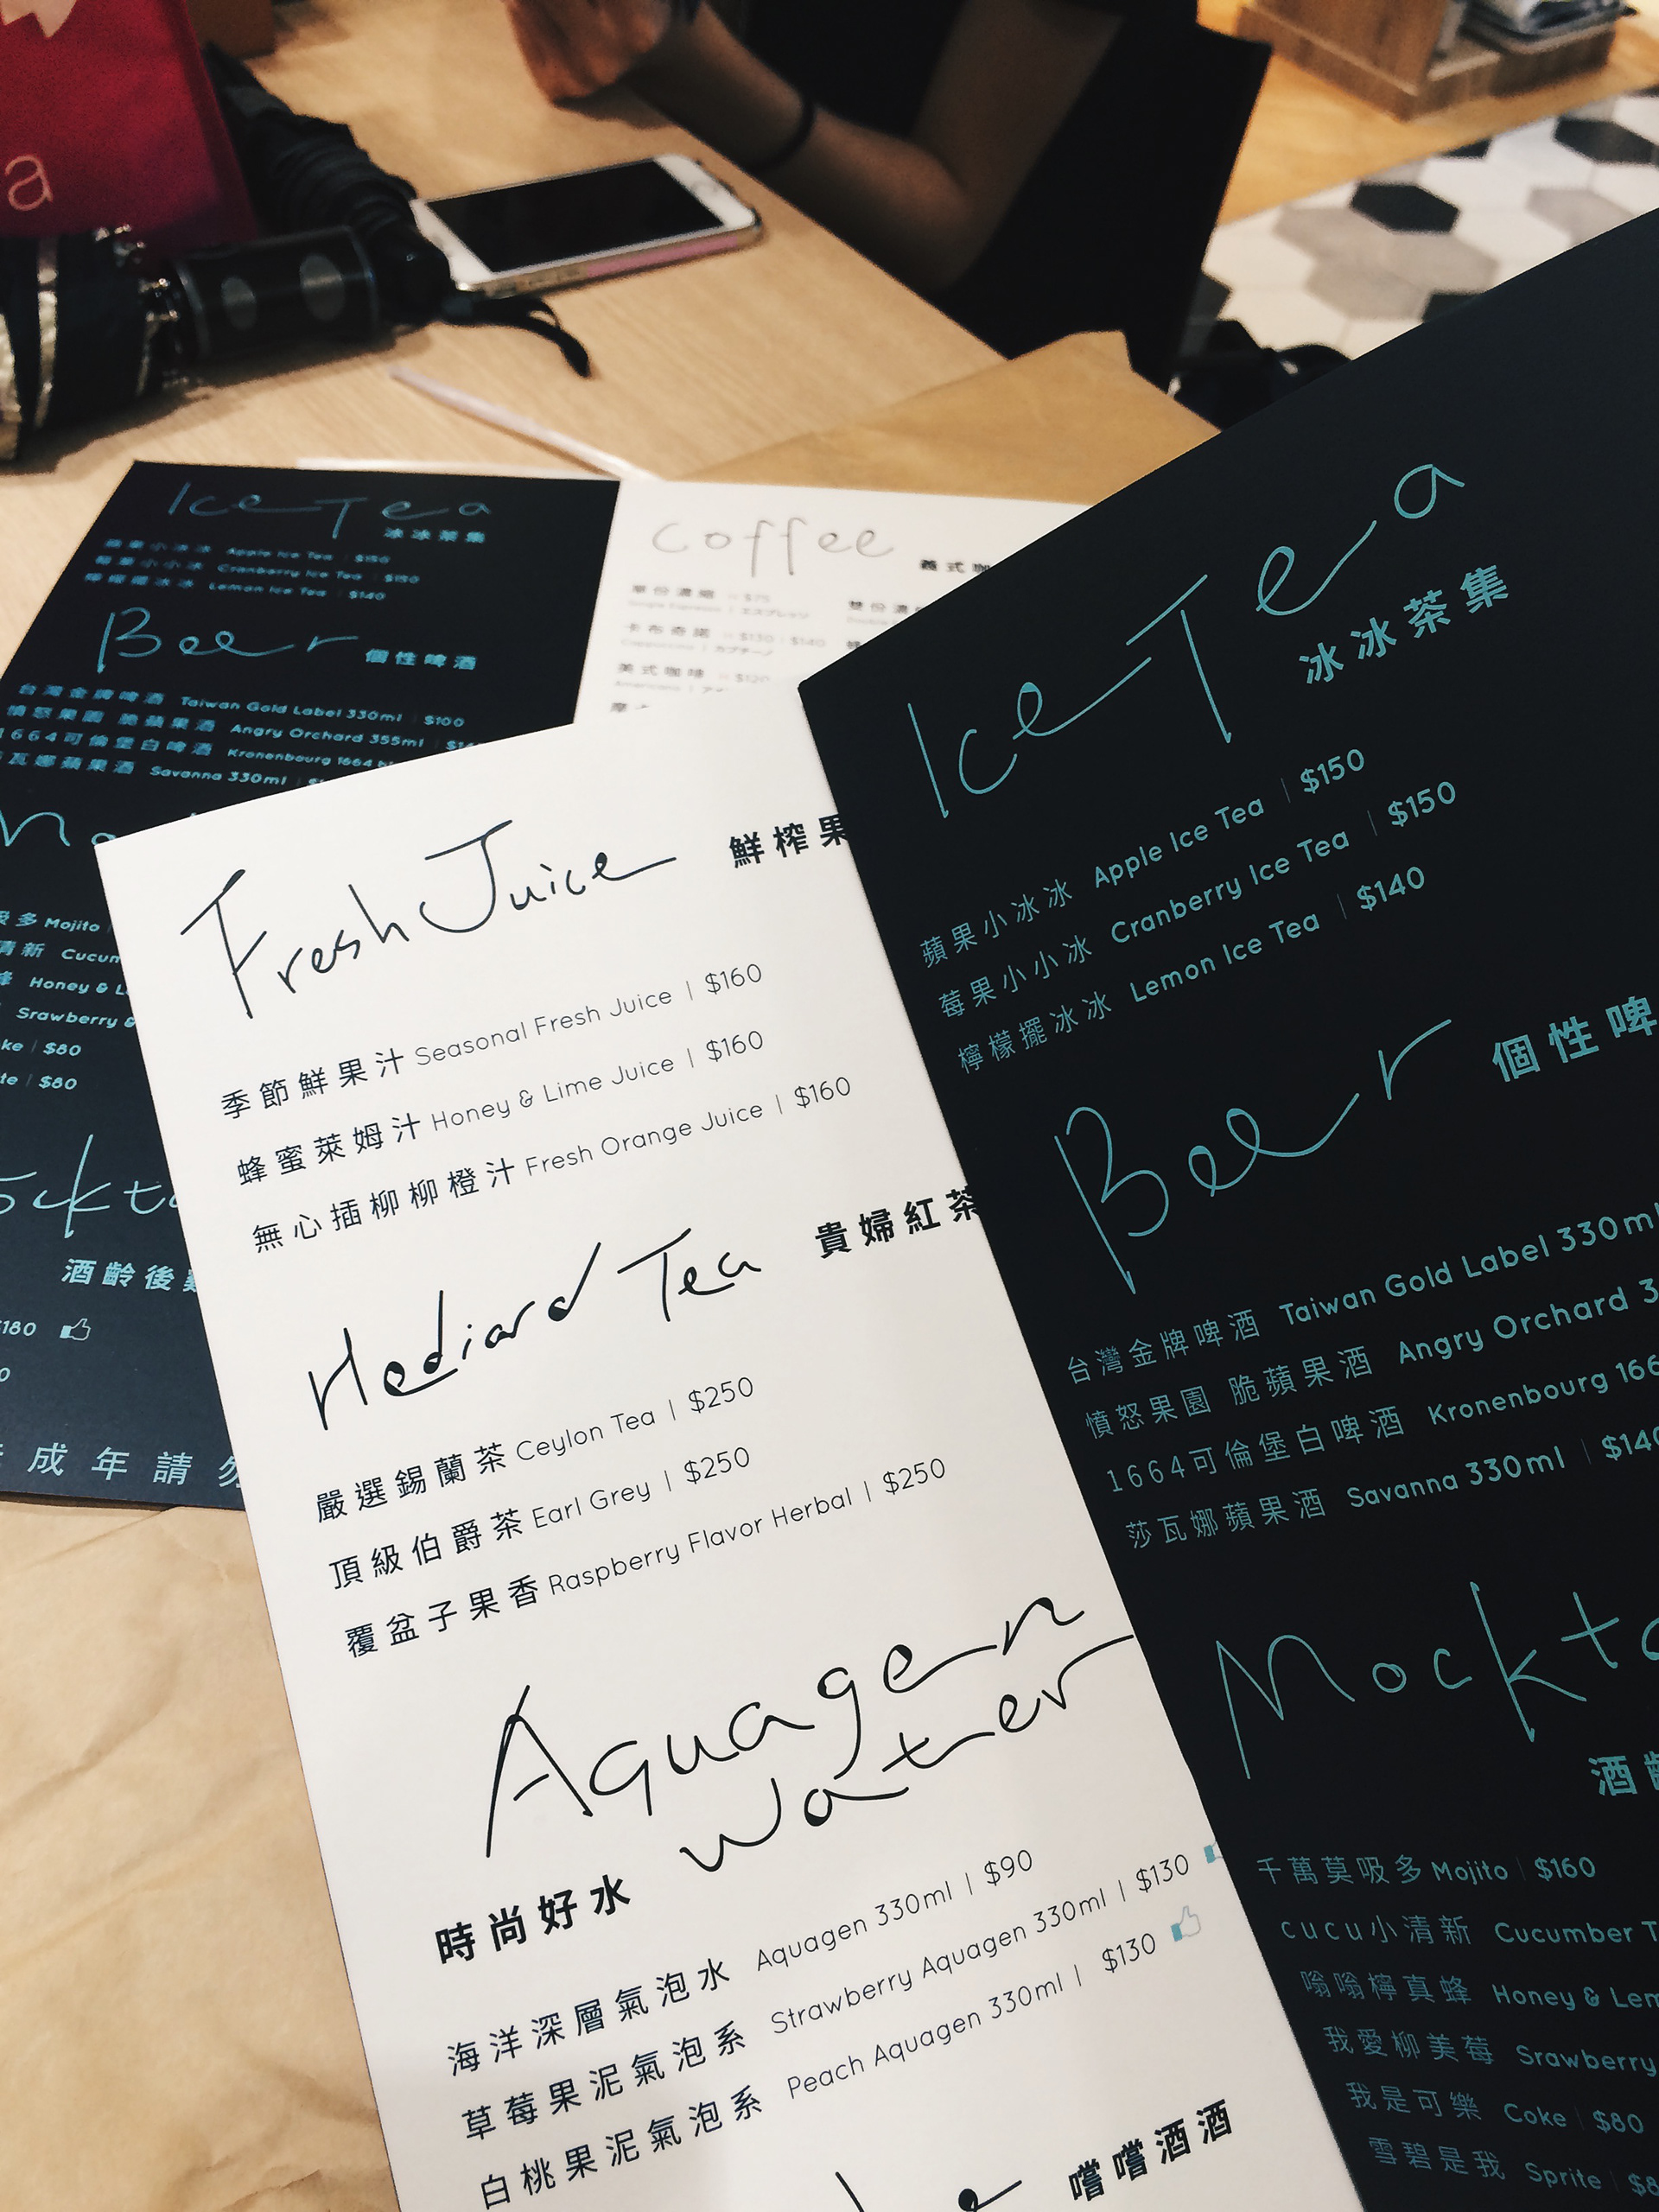 a
Ice Tea
冰冰茶集
蘋果小冰冰 Apple Ice Tea | $150
莓果小小冰 Cranberry Ice Tea | $150
檸檬擺冰冰 Lemon Ice Tea | $140
Beer 個性啤酒
台灣金牌啤酒 Taiwan Gold Label 330ml | $100
憤怒果園 脆蘋果酒 Angry Orchard 355ml
1664可倫堡白啤酒 Kronenbourg 1664
瓦娜蘋果酒 Savanna 330ml
多 Mojito
清新 Cucum
蜂 Honey & L
Srawberry &
ke | $80
te | $80
ockt
酒齡後
$180
0
成年請勿
coffee 義式咖
單份濃縮 H $75
Single Espresso | エスプレッソ
卡布奇諾 H $130 | $140
Cappuccino | カプチーノ
美式咖啡 H $120
Americano
Fresh Juice 鮮榨果
季節鮮果汁 Seasonal Fresh Juice | $160
蜂蜜萊姆汁 Honey & Lime Juice | $160
無心插柳柳橙汁 Fresh Orange Juice | $160
Hediard Tea 貴婦紅茶
嚴選錫蘭茶 Ceylon Tea | $250
頂級伯爵茶 Earl Grey | $250
覆盆子果香 Raspberry Flavor Herbal | $250
Aquagen
時尚好水 water
海洋深層氣泡水 Aquagen 330ml | $90
草莓果泥氣泡系 Strawberry Aquagen 330ml | $130
白桃果泥氣泡系 Peach Aquagen 330ml | $130
嚐嚐酒酒
Ice Tea
冰冰茶集
蘋果小冰冰 Apple Ice Tea | $150
莓果小小冰 Cranberry Ice Tea | $150
檸檬擺冰冰 Lemon Ice Tea | $140
Beer 個性啤
台灣金牌啤酒 Taiwan Gold Label 330ml
憤怒果園 脆蘋果酒 Angry Orchard 3
1664可倫堡白啤酒 Kronenbourg 166
莎瓦娜蘋果酒 Savanna 330ml | $140
Mockta
酒齡
千萬莫吸多 Mojito | $160
cucu小清新 Cucumber T
嗡嗡檸真蜂 Honey & Lem
我愛柳美莓 Srawberry
我是可樂 Coke | $80
雪碧是我 Sprite | $8